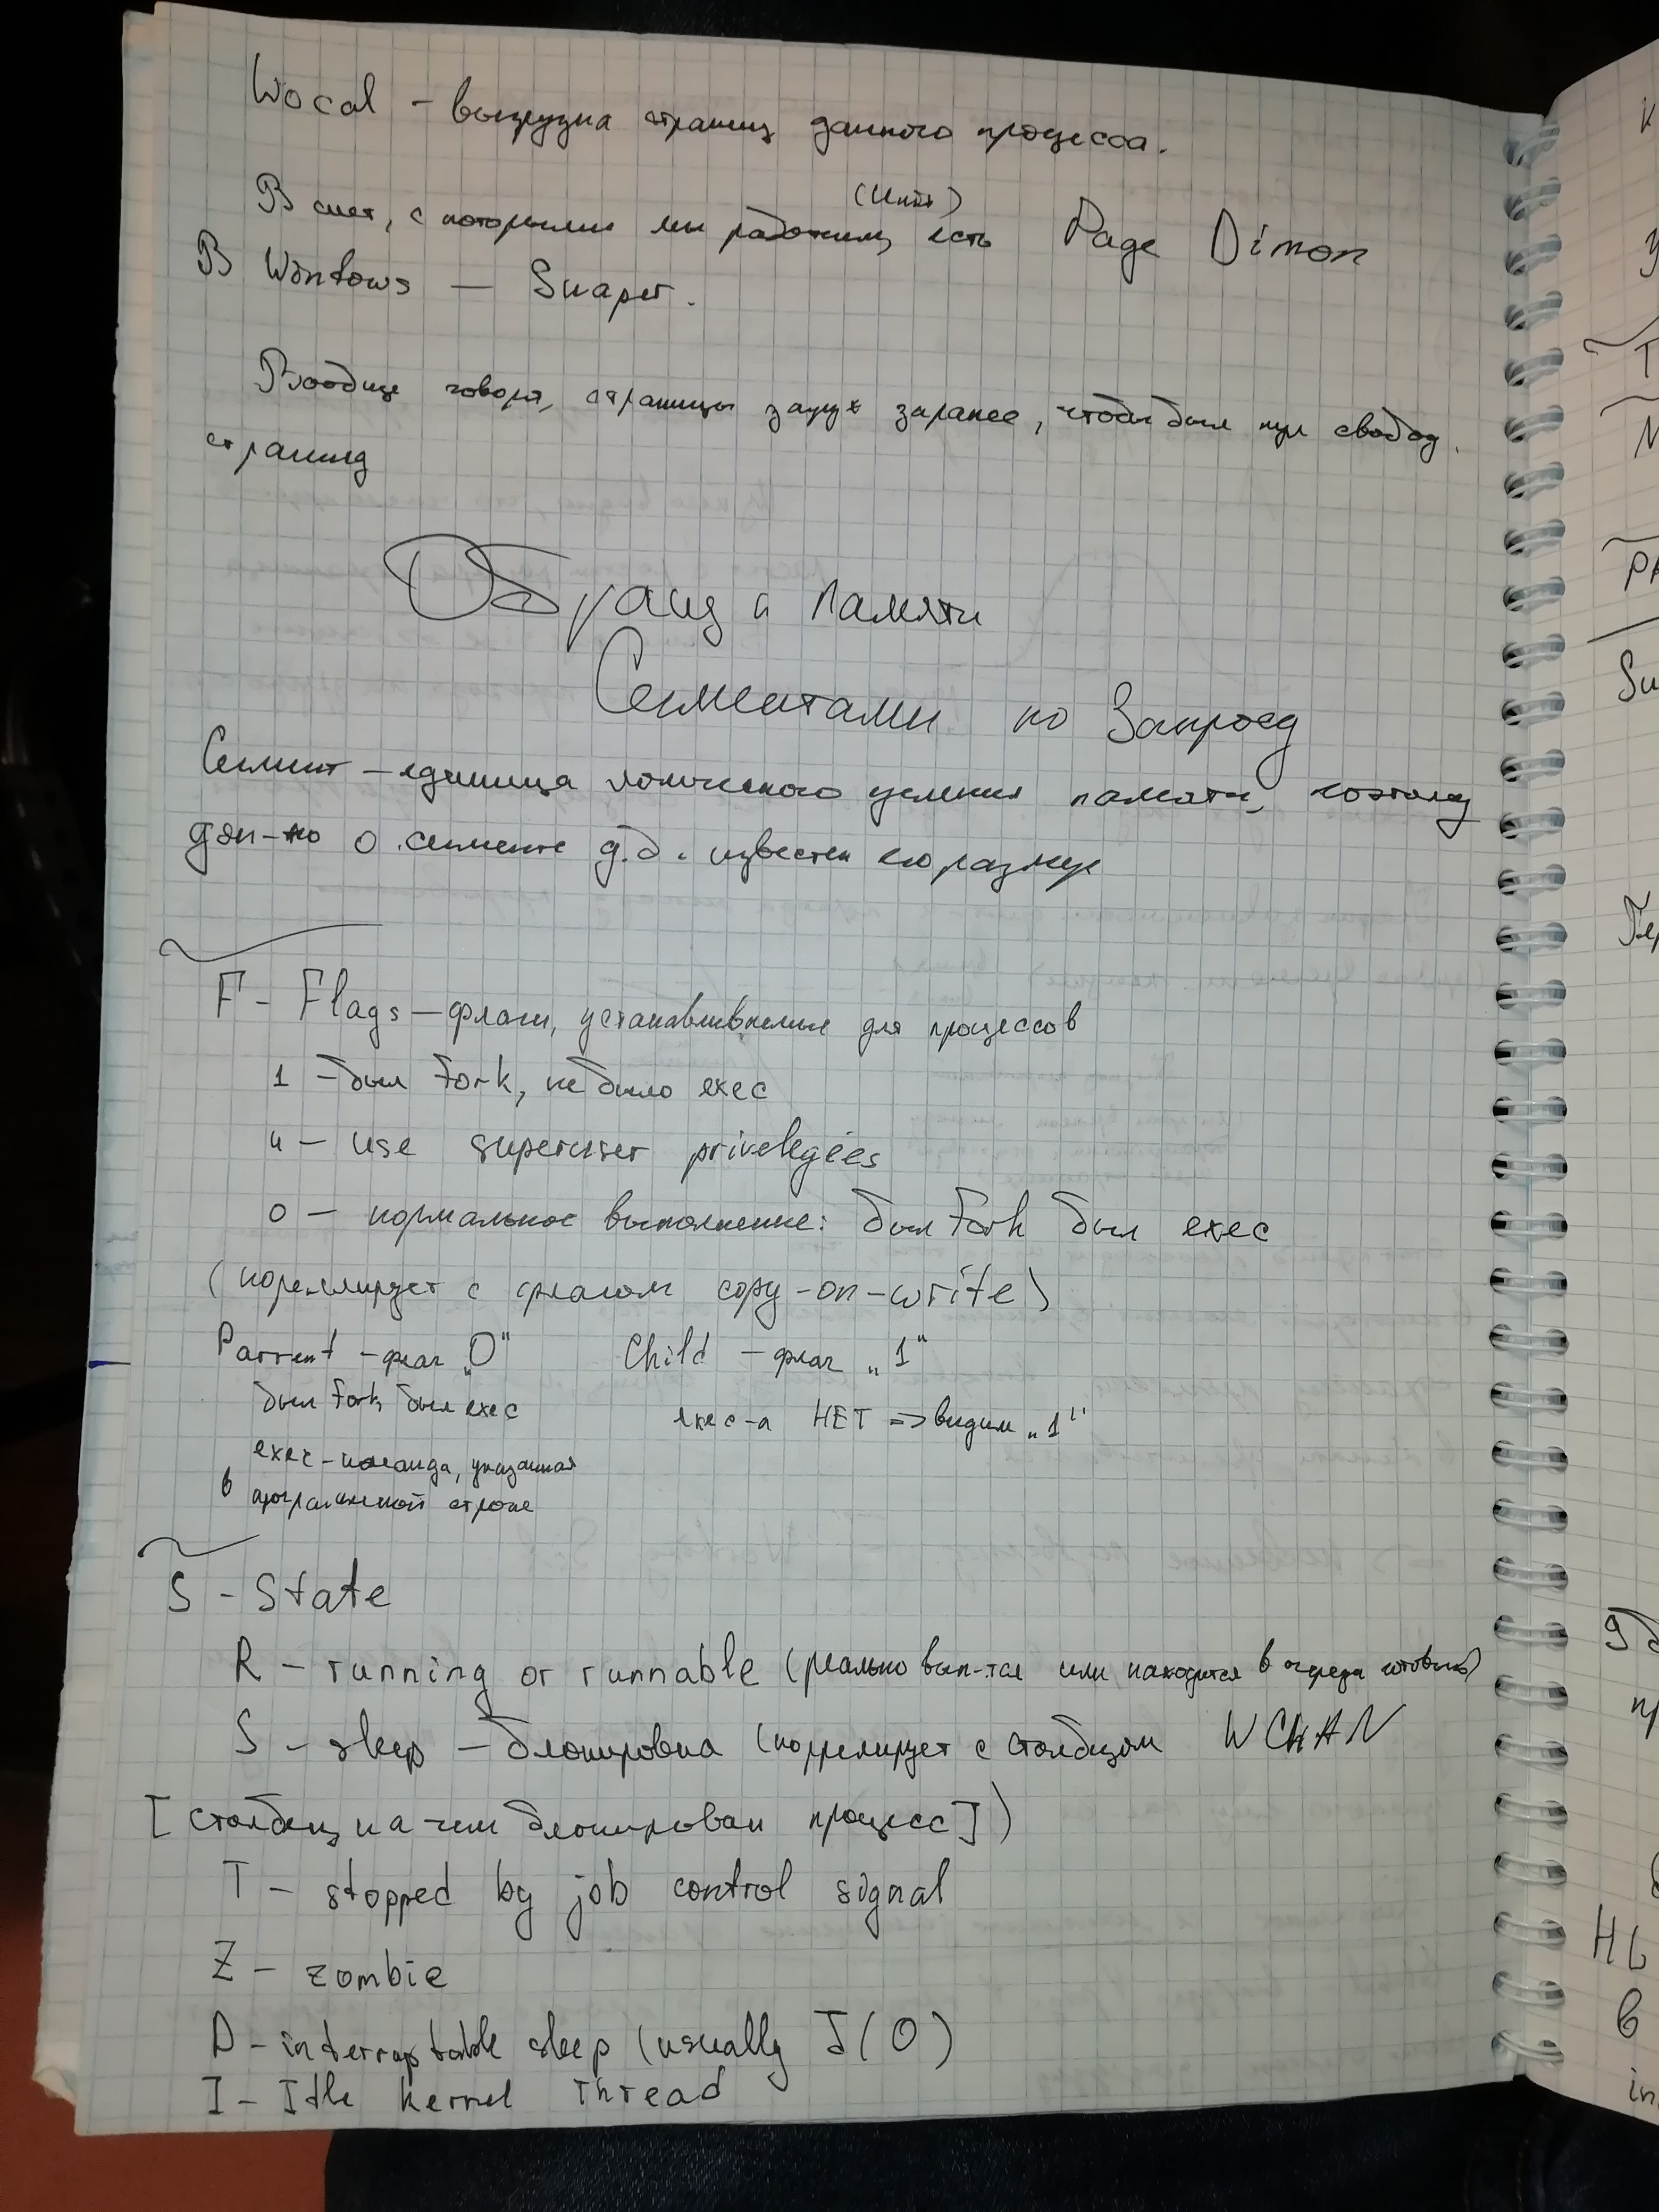 Wocal – выгрузка страниц данного процесса.
(Unix)
В сист, с которыми мы работаем, есть Page Dimon
В Windows — Swaper.
Вообще говоря, страницы заранее, чтобы был пул свобод.
страниц
Управ памяти
Сегментами по Запросу
Сегмент – единица логического деления памяти, поэтому
о сегменте д.б. известен его размер
F - Flags – флаги, устанавливаемые для процессов
1 – был fork, не было exec
4 – use superuser privelegies
0 – нормальное выполнение: был fork был exec
(кореллирует с флагом copy-on-write)
Parrent – флаг „0" Child – флаг „1"
был fork был exec
exec-а НЕТ => видим „1"
exec – команда, указанная
в программной строке
S - State
R – running or runnable (реально вып-тся или находится в очереди готовых)
S – sleep – блокировка (коррелирует с столбцом WCHAN
[столбец на чем блокирован процесс])
T – stopped by job control signal
Z – zombie
D – interruptable sleep (usually I/O)
I – Idle kernel thread